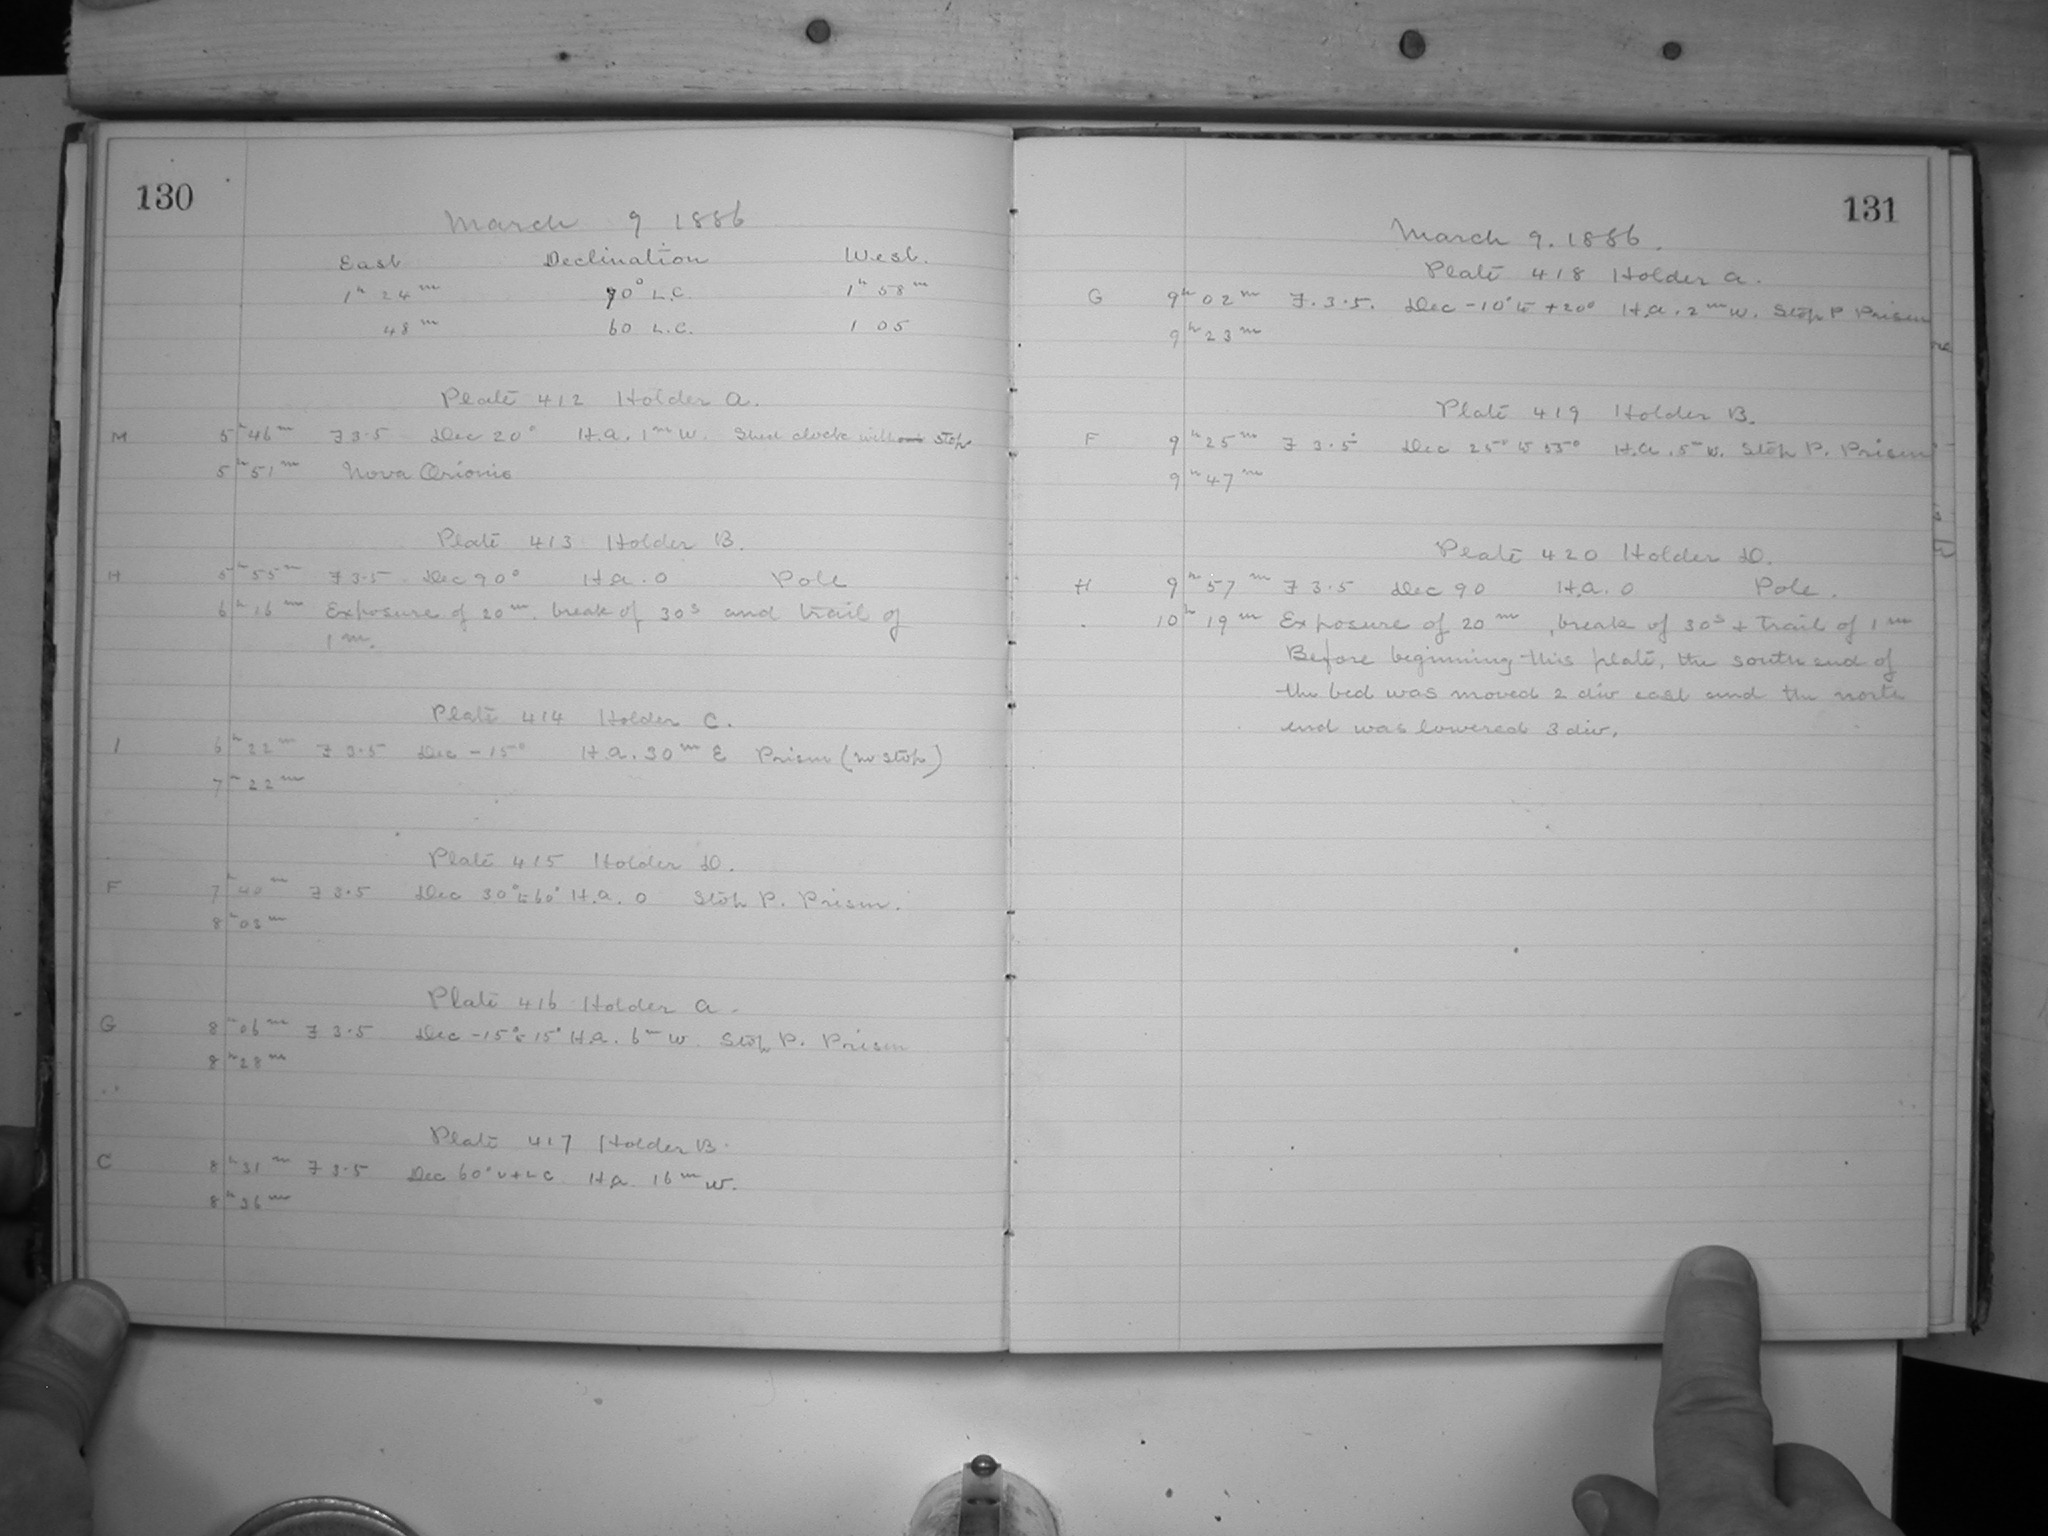 130
March 9 1886
East Declination West.
1h 24m 70° L.C. 1h 58m
48m 60 L.C. 1 05
Plate 412 Holder A.
M 5h 46m F 3.5 Dec 20° H.A. 1m W. Sted clock with stop
5h 51m Nova Orionis
Plate 413 Holder B.
H 5h 55m F 3.5 Dec 90° H.A. 0 Pole
6h 16m Exposure of 20m. break of 30s and trail of
1m.
Plate 414 Holder C.
I 6h 22m F 3.5 Dec -15° H.A. 30m E Prism (no stop)
7h 22m
Plate 415 Holder D.
F 7h 40m F 3.5 Dec 30° to 60° H.A. 0 Stop P. Prism.
8h 03m
Plate 416 Holder A.
G 8h 06m F 3.5 Dec -15° to 15° H.A. 6m W. Stop P. Prism
8h 28m
Plate 417 Holder B.
C 8h 31m F 3.5 Dec 60° U+LC H.A. 16m W.
8h 36m
131
March 9. 1886.
Plate 418 Holder A.
G 9h 02m F. 3.5. Dec -10° to +20° H.A. 2m W. Stop P Prism
9h 23m
Plate 419 Holder B.
F 9h 25m F 3.5 Dec 25° to 55° H.A. 5m W. Stop P. Prism
9h 47m
Plate 420 Holder D.
H 9h 57m F 3.5 Dec 90 H.A. 0 Pole.
10h 19m Exposure of 20m, break of 30s + trail of 1m
Before beginning this plate, the south end of
the bed was moved 2 div east and the north
end was lowered 3 div.